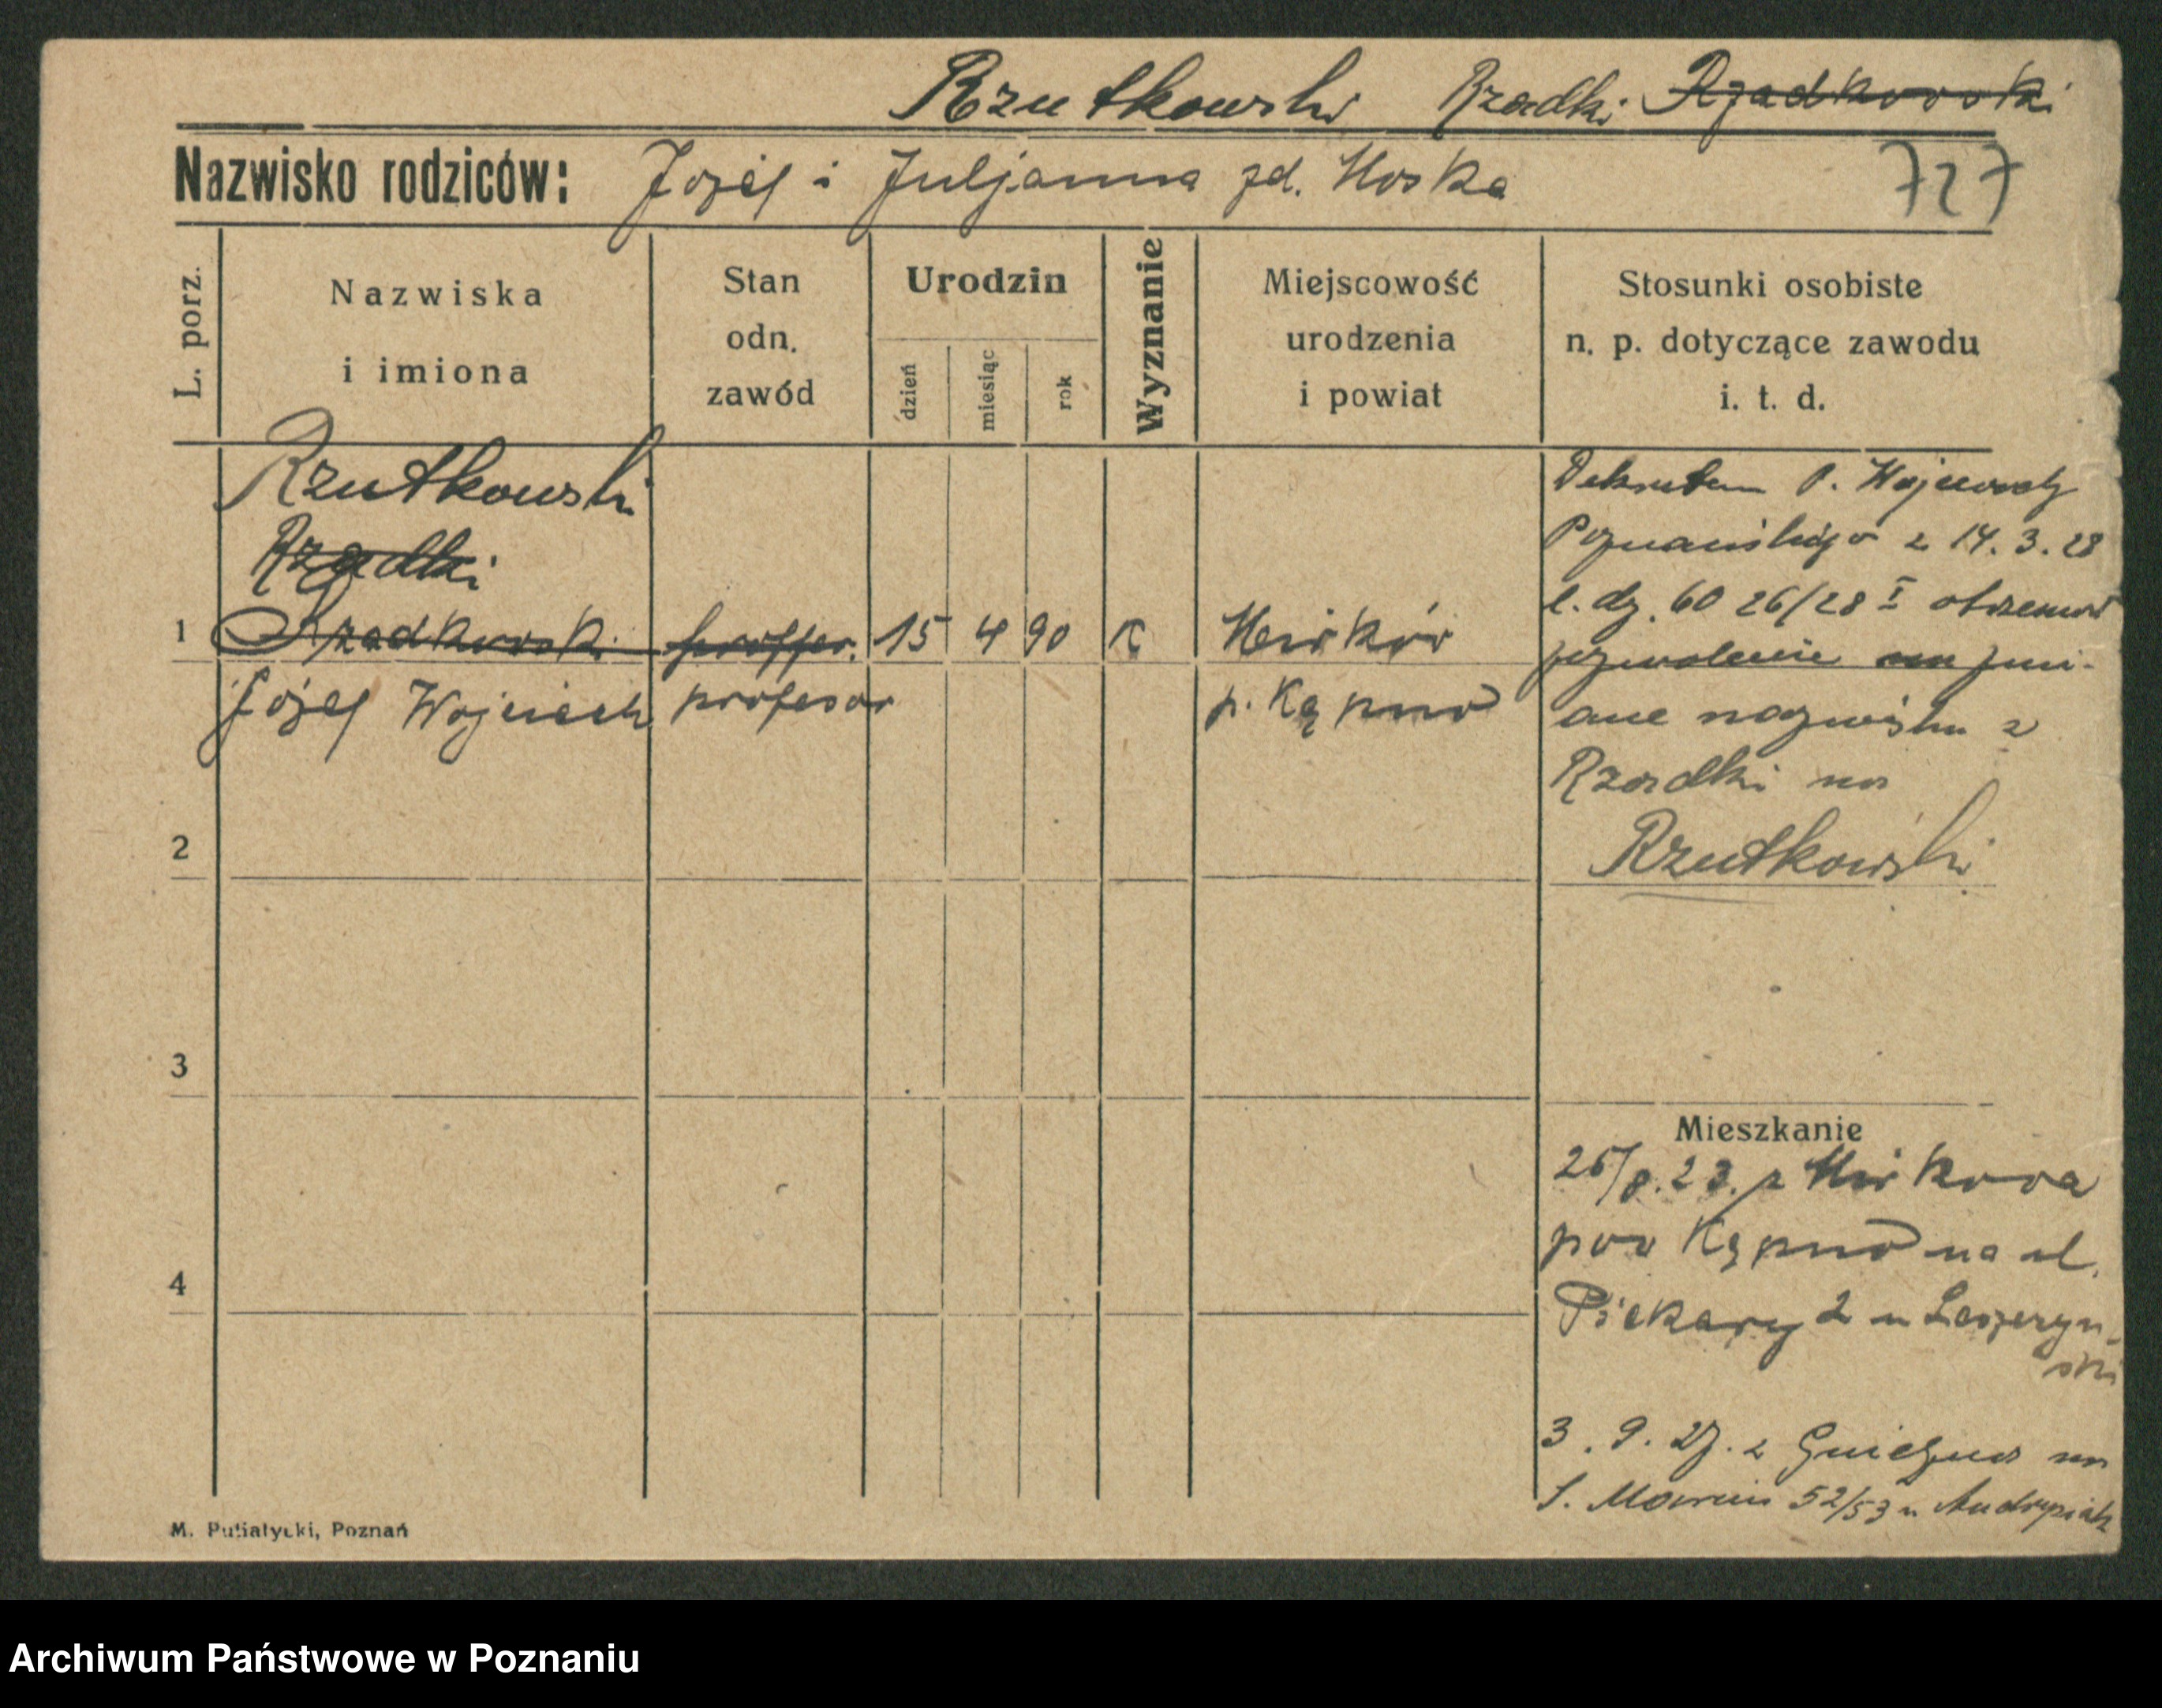 Rzutkowski Rzadki Rzadkowski
Nazwisko rodziców: Józef i Juljanna zd.
727
L. porz.
Nazwiska
i imiona
Stan
odn.
zawód
Urodzin
dzień
miesiąc
rok
Wyznanie
Miejscowość
urodzenia
i powiat
Stosunki osobiste
n. p. dotyczące zawodu
i. t. d.
Rzutkowski
Rzadki
1 Rzadkowski 15 4 90 K
Józef Wojciech profesor p. Kępno
Dekretem P. Wojewody
Poznańskiego z 14. 3. 28
l. dz. 6026/28 I otrzymał
pozwolenie na zmi-
anę nazwiska z
Rzadki na
Rzutkowski
2
3
4
Mieszkanie
25/8. 23. z
pow Kępno na ul.
Piekary 2 u Leszczyn-
ski
3. 9. 27. z Gniezna na
S. Marcin 52/53 u
M. Putiatycki, Poznań
Archiwum Państwowe w Poznaniu